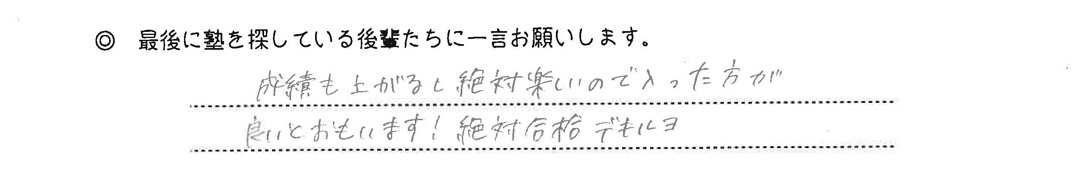 ◎ 最後に塾を探している後輩たちに一言お願いします。
成績も上がるし絶対楽しいので入った方が
良いとおもいます！絶対合格デキルヨ